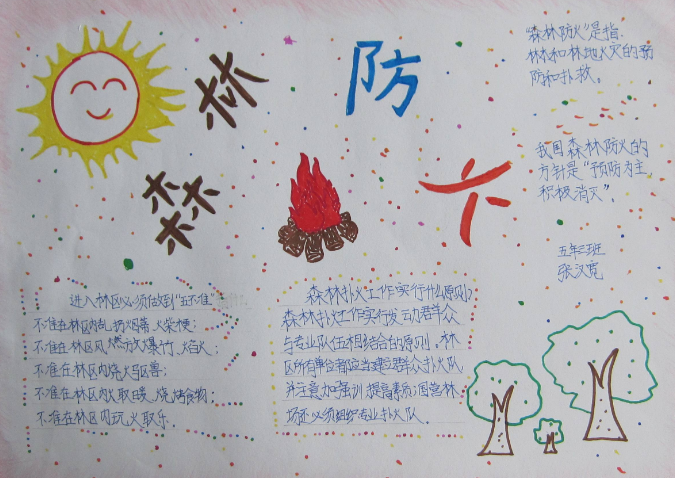 森林防火
"森林防火"是指
林和林地火灾的预
防和扑救。
我国森林防火的
方针是"预防为主,
积极消灭"。
五年三班
张汉宽
进入林区必须做到"五不准"
不准在林区内乱扔烟蒂、火柴梗;
不准在林区风燃放爆竹、焰火;
不准在林区内烧火驱兽;
不准在林区内火取暖、烧烤食物;
不准在林区内玩火取乐.
森林扑火工作实行什么原则?
森林扑火工作实行发动群众
与专业队伍相结合的原则,林
区所有单位都应当建立群众扑火队
并注意加强训提高素质;国营林
场还必须组织专业扑火队。